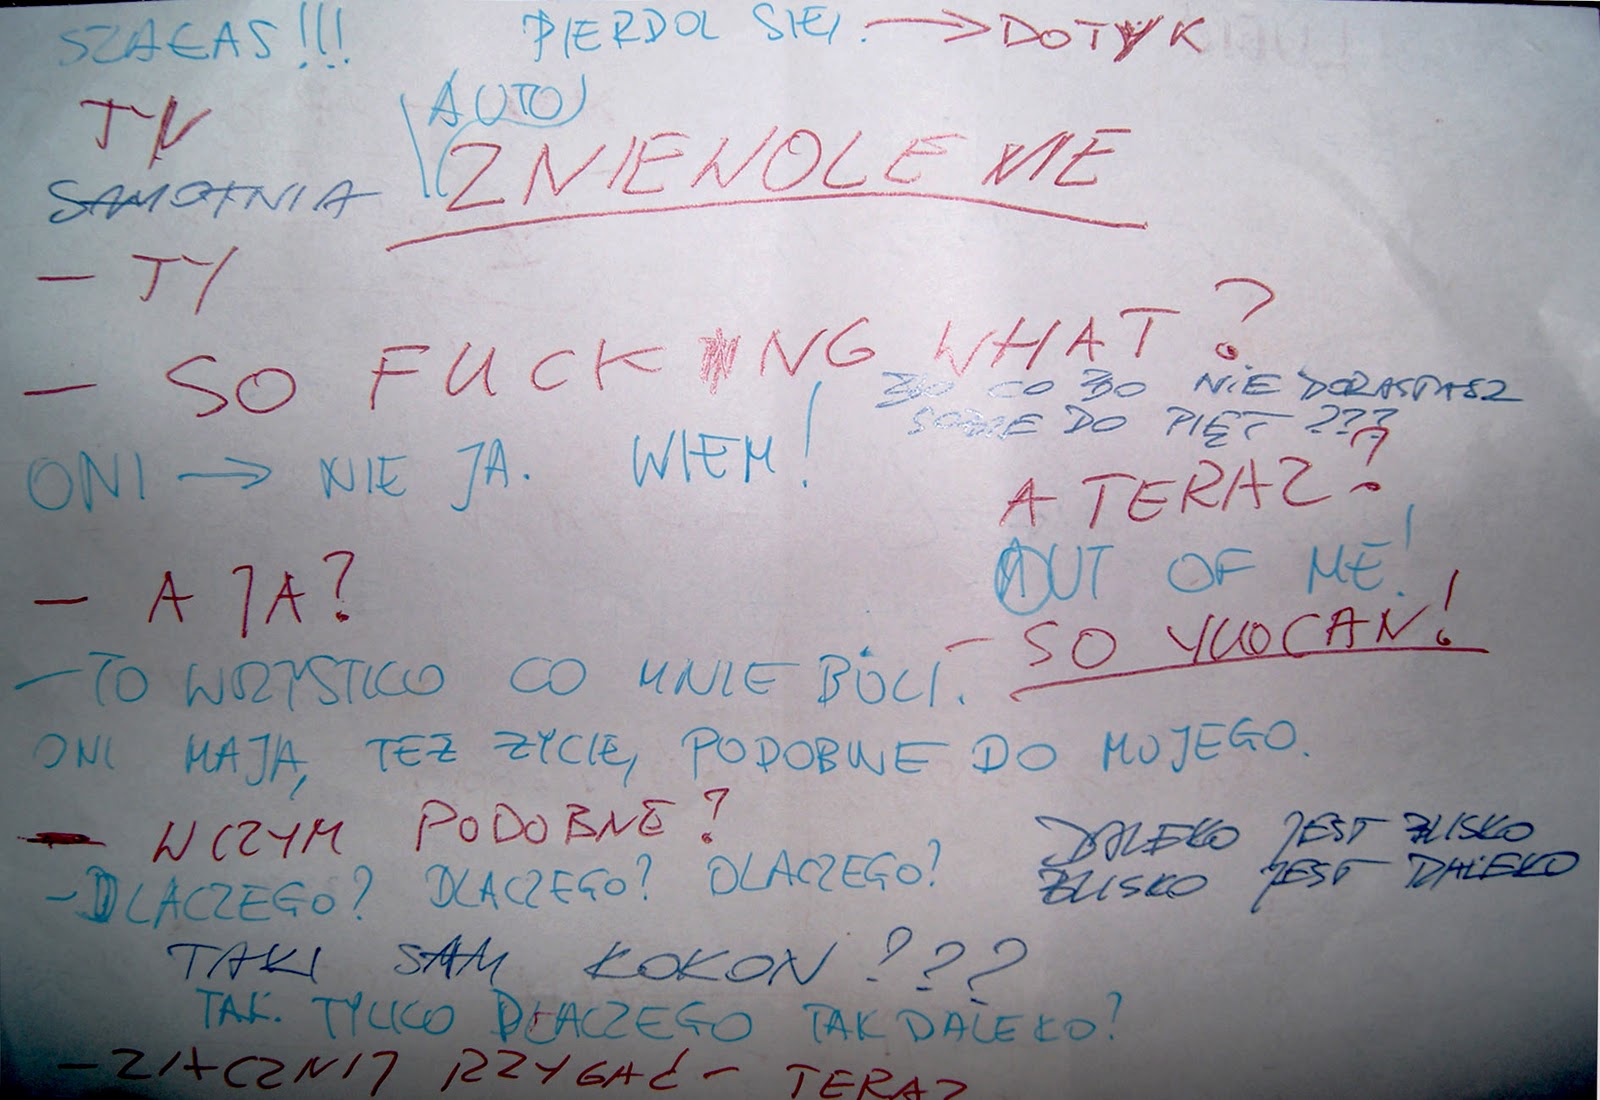 SZAŁAS!!! PIERDOL SIĘ. → DOTYK
TY (AUTO)
ZNIEWOLENIE
SAMOTNIA
- TY
- SO FUCKING WHAT?
BO CO BO NIE DORASTASZ
SOBIE DO PIĘT ???
ONI → NIE JA. WIEM!
A TERAZ?
OUT OF ME!
- A JA?
- SO YUOCAN!
- TO WSZYSTKO CO MNIE BOLI.
ONI MAJĄ, TEŻ ŻYCIE, PODOBNE DO MOJEGO.
- W CZYM PODOBNE?
DALEKO JEST BLISKO
BLISKO JEST DALEKO
- DLACZEGO? DLACZEGO? DLACZEGO?
TAKI SAM KOKON ???
TAK. TYLKO DLACZEGO TAK DALEKO?
- ZACZNIJ RZYGAĆ - TERAZ